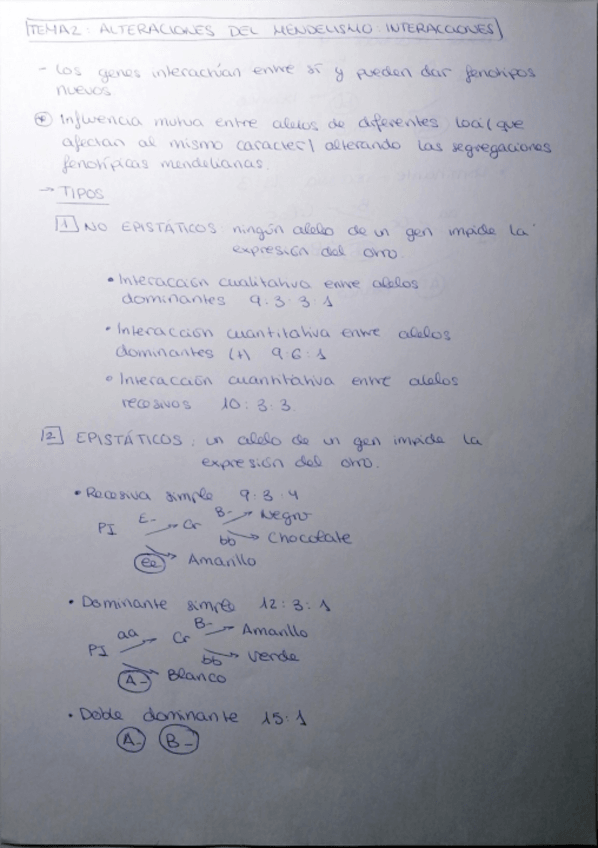 TEMA2: ALTERACIONES DEL MENDELISMO: INTERACCIONES
- Los genes interactúan entre sí y pueden dar fenotipos
nuevos
* Influencia mutua entre alelos de diferentes loci (que
afectan al mismo caracter) alterando las segregaciones
fenotípicas mendelianas.
→ TIPOS
1 NO EPISTÁTICOS ningún alelo de un gen impide la
expresión del otro.
• Interacción cualitativa entre alelos
dominantes 9:3:3:1
• Interacción cuantitativa entre alelos
dominantes (+) 9:6:1
• Interacción cuantitativa entre alelos
recesivos 10:3:3
2 EPISTÁTICOS: un alelo de un gen impide la
expresión del otro.
• Recesiva simple 9:3:4
PI E- → Cr B- → Negro
bb → Chocolate
ee → Amarillo
• Dominante simple 12:3:1
PI aa → Cr B- → Amarillo
bb → Verde
A- → Blanco
• Doble dominante 15:1
A- B-